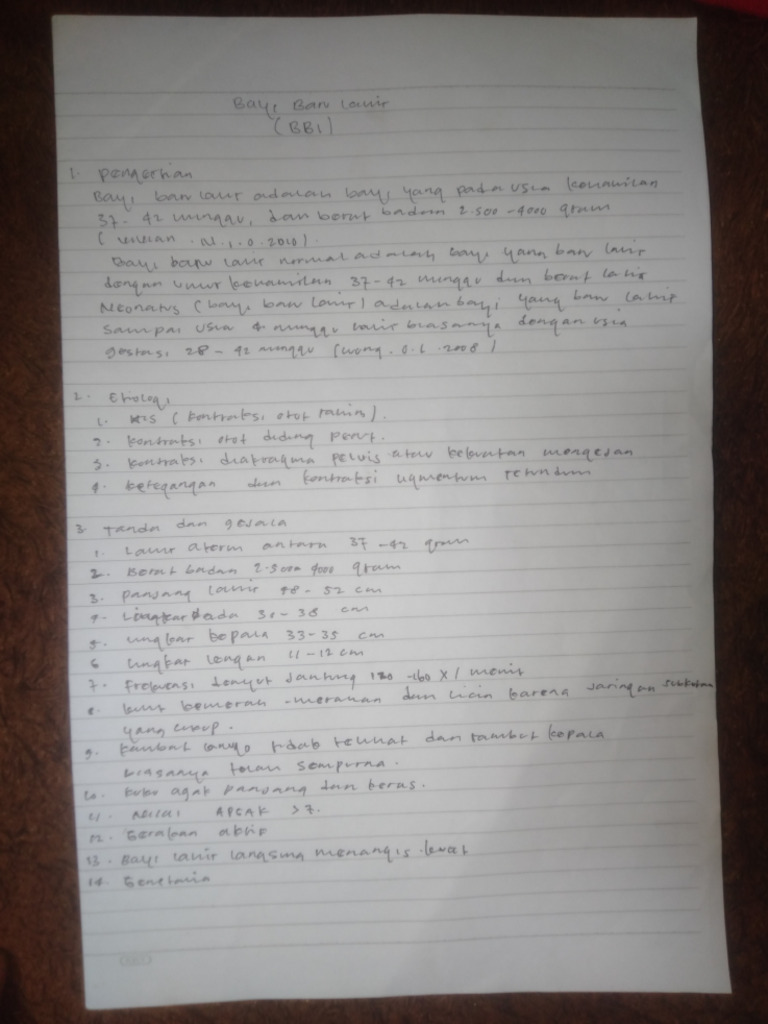 Bayi Baru Lahir
(BBL)
1. Pengertian
Bayi baru lahir adalah bayi yang pada usia kehamilan
37 - 42 minggu, dan berat badan 2.500 - 4000 gram
( . M . I . O . 2010 ) .
Bayi baru lahir normal adalah bayi yang baru lahir
dengan umur kehamilan 37-42 minggu dan berat lahir
Neonatus (bayi baru lahir) adalah bayi yang baru lahir
sampai usia 4 minggu lahir biasanya dengan usia
gestasi 28 - 42 minggu (wong . D. L . 2008 )
2. Etiologi
1. His (kontraksi otot rahim).
2. kontraksi otot dinding perut.
3. kontraksi diafragma pelvis atau kekuatan mengejan
4. ketegangan dan kontraksi ligmentum retundum
3. Tanda dan gejala
1. Lahir aterm antara 37 - 42 gram
2. Berat badan 2.500 4000 gram
3. panjang lahir 48 - 52 cm
4. Lingkar dada 30 - 38 cm
5. lingkar kepala 33-35 cm
6 lingkar lengan 11 - 12 cm
7. Frekuensi denyut Jantung 120 - 160 x / menit
8. kulit kemerah - merahan dan licin karena Jaringan
yang cukup .
9. Rambut lanugo tidak terlihat dan rambut kepala
biasanya telah sempurna .
10. kuku agak panjang dan keras .
11. Nilai APGAR > 7.
12. Gerakan aktif
13. Bayi lahir langsung menangis kuat
14. Genetalia